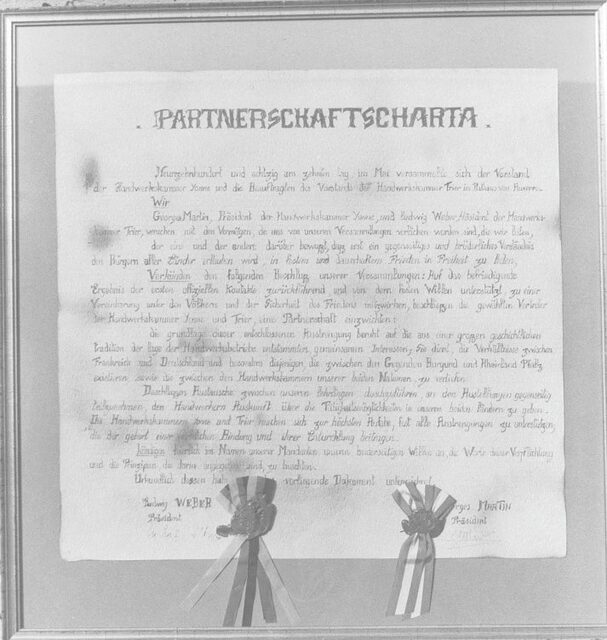 . PARTNERSCHAFTSCHARTA .
Neunzehnhundert und achtzig am zehnten Tag im Mai versammelte sich der Vorstand
der Handwerkskammer Yonne und die Beauftragten des Vorstands der Handwerkskammer Trier in
Wir
Georges Martin, Präsident der Handwerkskammer Yonne, und Ludwig Weber, Präsident der Handwerks-
kammer Trier, versehen mit den Vermögen, die uns von unseren Versammlungen verliehen worden sind, die wir leiten,
der eine und der andere darüber bewegt, dass ein gegenseitiges und brüderliches Verständnis
den Bürgern aller Länder erlauben wird, in festem und dauerhaftem Frieden in Freiheit zu leben,
Verkünden den folgenden Beschluss unserer Versammlungen: Auf das befriedigende
Ergebnis der ersten offiziellen Kontakte zurückführend und von dem hohen Willen unterstützt, zu einer
Vereinbarung unter den Völkern und der Sicherheit des Friedens mitzuwirken, beschliessen die gewählten Vertreter
der Handwerkskammer Yonne und Trier, eine Partnerschaft einzurichten:
die grundlage dieser entschlossenen Anstrengung beruht auf die aus einer grossen geschichtlichen
tradition der lage der Handwerksbetriebe entstammten, gemeinsamen Interessen, Sie dient, die Verhältnisse zwischen
Frankreich und Deutschland und besonders diejenigen, die zwischen den Gegenden Burgund und Rheinland Pfalz,
existieren, sowie die zwischen den Handwerkskammern unserer beiden Nationen, zu vertiefen.
Austausche zwischen unseren Lehrlingen durchzuführen, an den Austellungen gegenseitig
teilzunehmen, den Handwerkern Auskunft über die Tätigkeitsmöglichkeiten in unseren beiden Ländern zu geben.
Die Handwerkskammern Yonne und Trier machen sich zur höchsten Aufgabe, fast alle Anstrengungen zu unterstützen,
die der geburt einer Bindung und ihrer Entwicklung beitragen.
feierlich im Namen unserer Mandanten unseren Willen an, die Werte dieser Verpflichtung
und die Prinzipien die darin angegeben sind, zu beachten.
Urkundlich dessen vorliegende Dokument unterzeichnet.
Ludwig WEBER MARTIN
Präsident Präsident